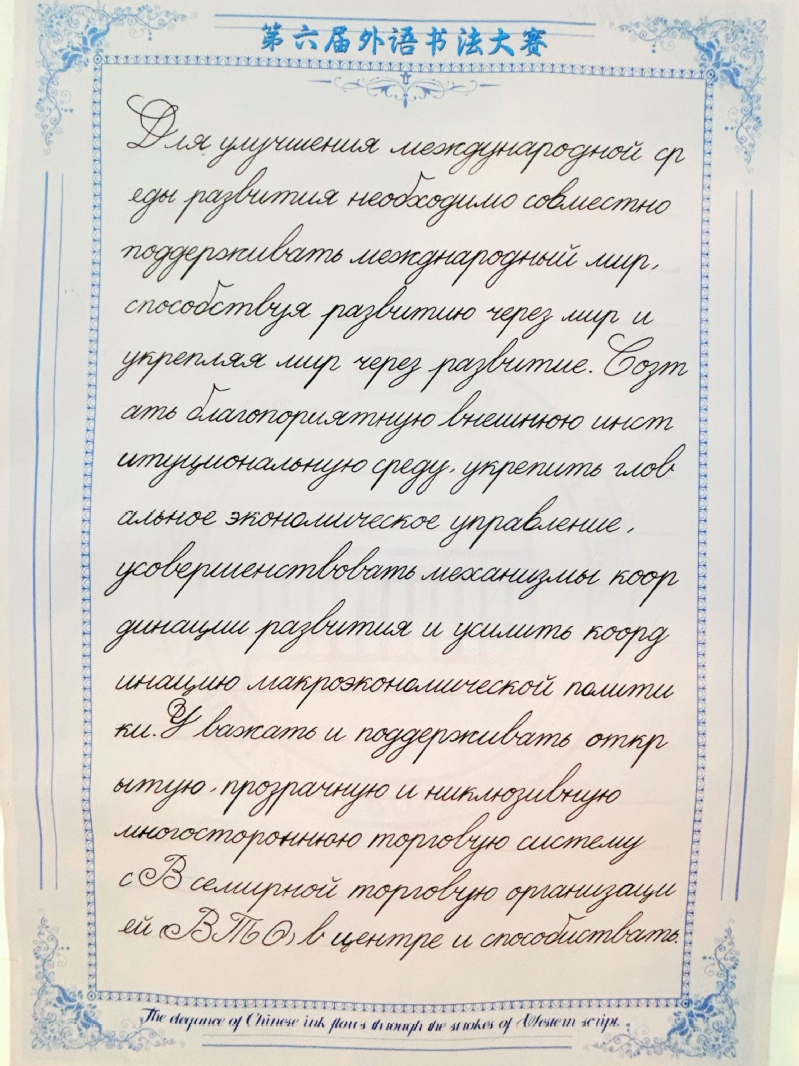 第六届外语书法大赛
Для улучшения международной ср
еды развития необходимо совместно
поддерживать международный мир,
способствуя развитию через мир и
укрепляя мир через развитие. Созт
ать благопориятную внешнюю инст
итуциональную среду, укрепить глов
альное экономическое управление,
усовершенствовать механизмы коор
динации развития и усилить коорд
инацию макроэкономической полити
ки. У важать и поддерживать откр
ытую, прозрачную и никлюзивную
многостороннюю торговую систему
с В семирной торговую организаци
ей (ВТО) в центре и способиствать.
The elegance of Chinese ink flows through the strokes of Western script.